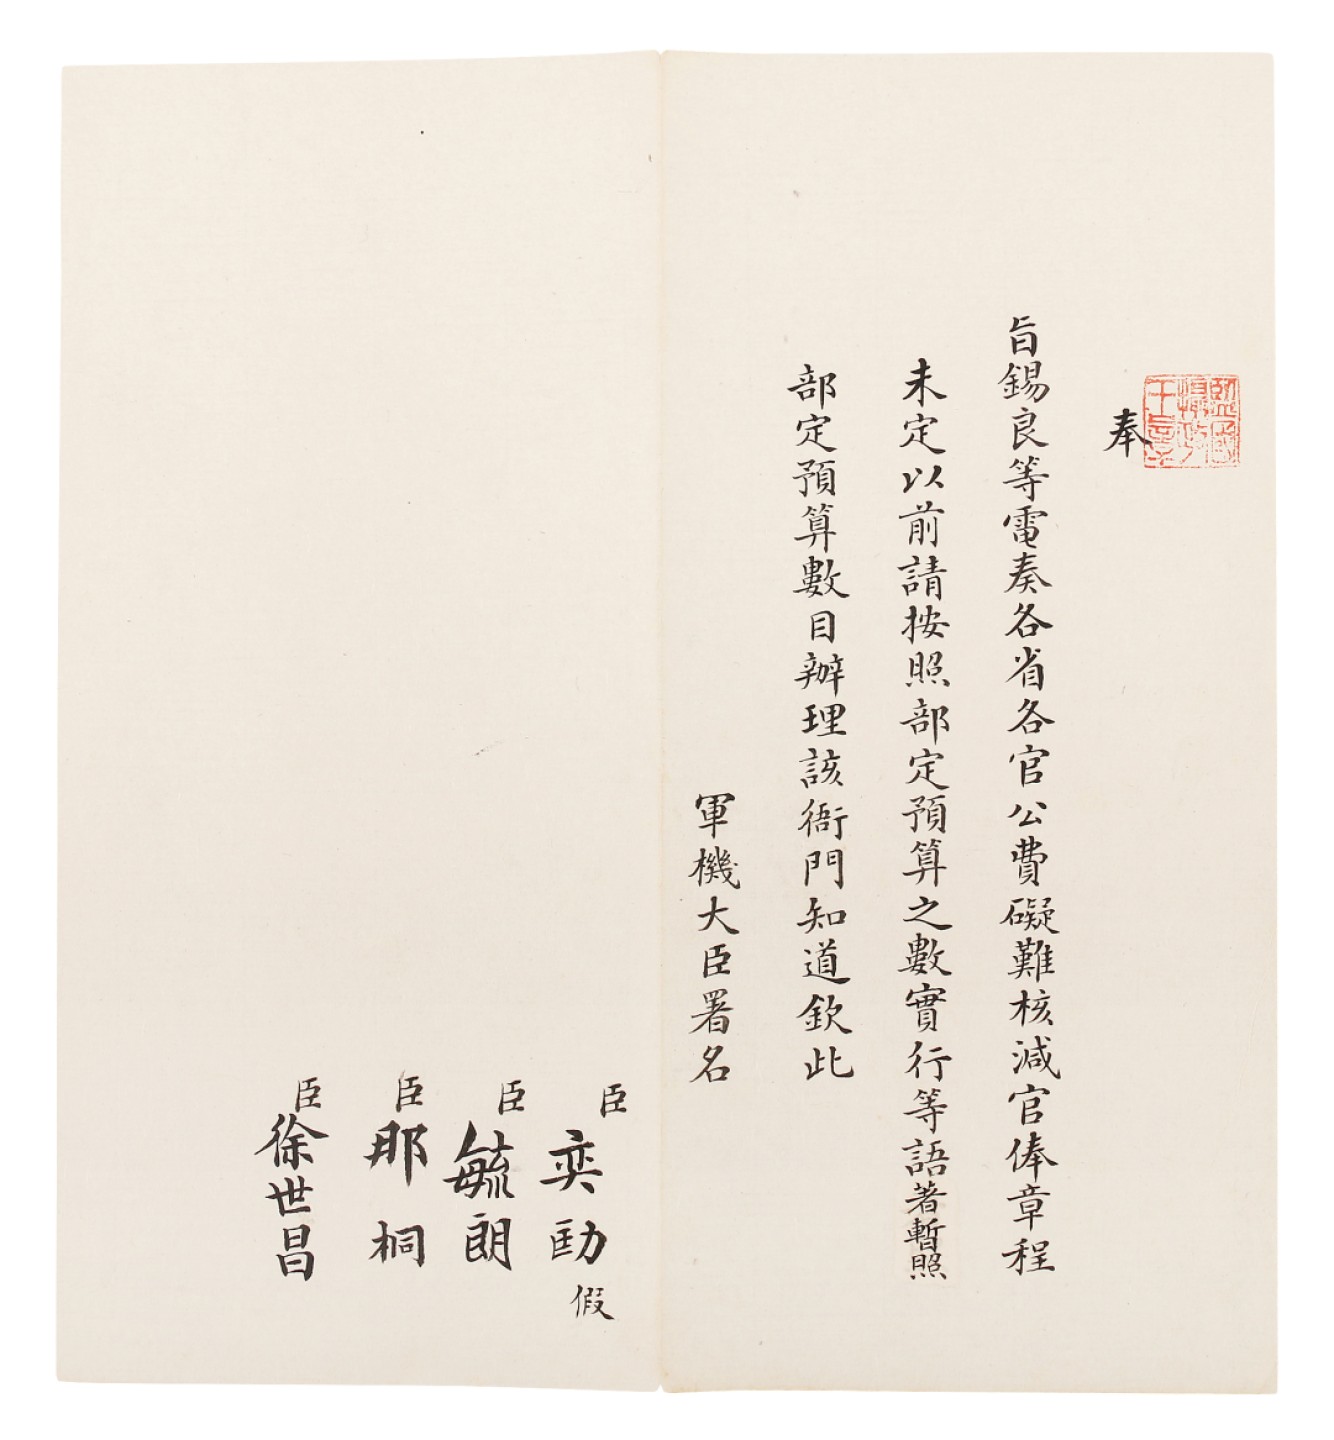 監國
攝政
王章
奉
旨錫良等電奏各省各官公費礙難核減官俸章程
未定以前請按照部定預算之數實行等語著暫照
部定預算數目辦理該衙門知道欽此
軍機大臣署名
臣奕劻假
臣毓朗
臣那桐
臣徐世昌